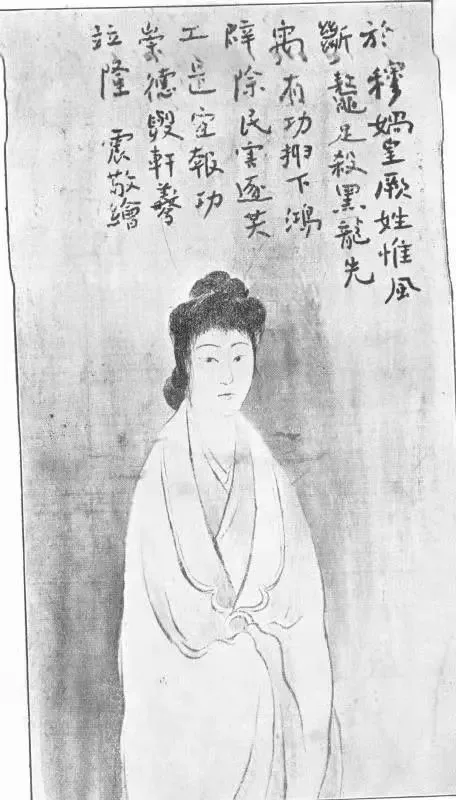 於穆媧皇厥姓惟風
斷鼇足殺黑龍先
禹有功抑下鴻
辟除民害逐共
工是宜報功
崇德與軒羲
竝隆 震敬繪